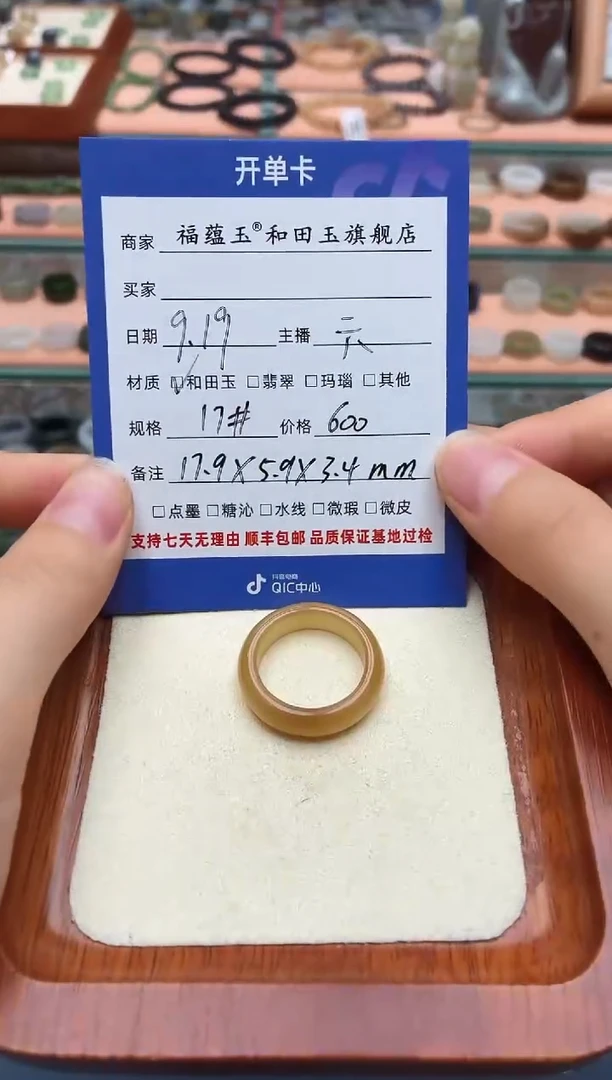 开单卡
商家 福蕴玉®和田玉旗舰店
买家
日期 9.19 主播 元
材质 ☑和田玉 □翡翠 □玛瑙 □其他
规格 17# 价格 600
备注 17.9X5.9X3.4mm
□点墨 □糖沁 □水线 □微瑕 □微皮
支持七天无理由 顺丰包邮 品质保证基地过检
抖音电商
QIC中心